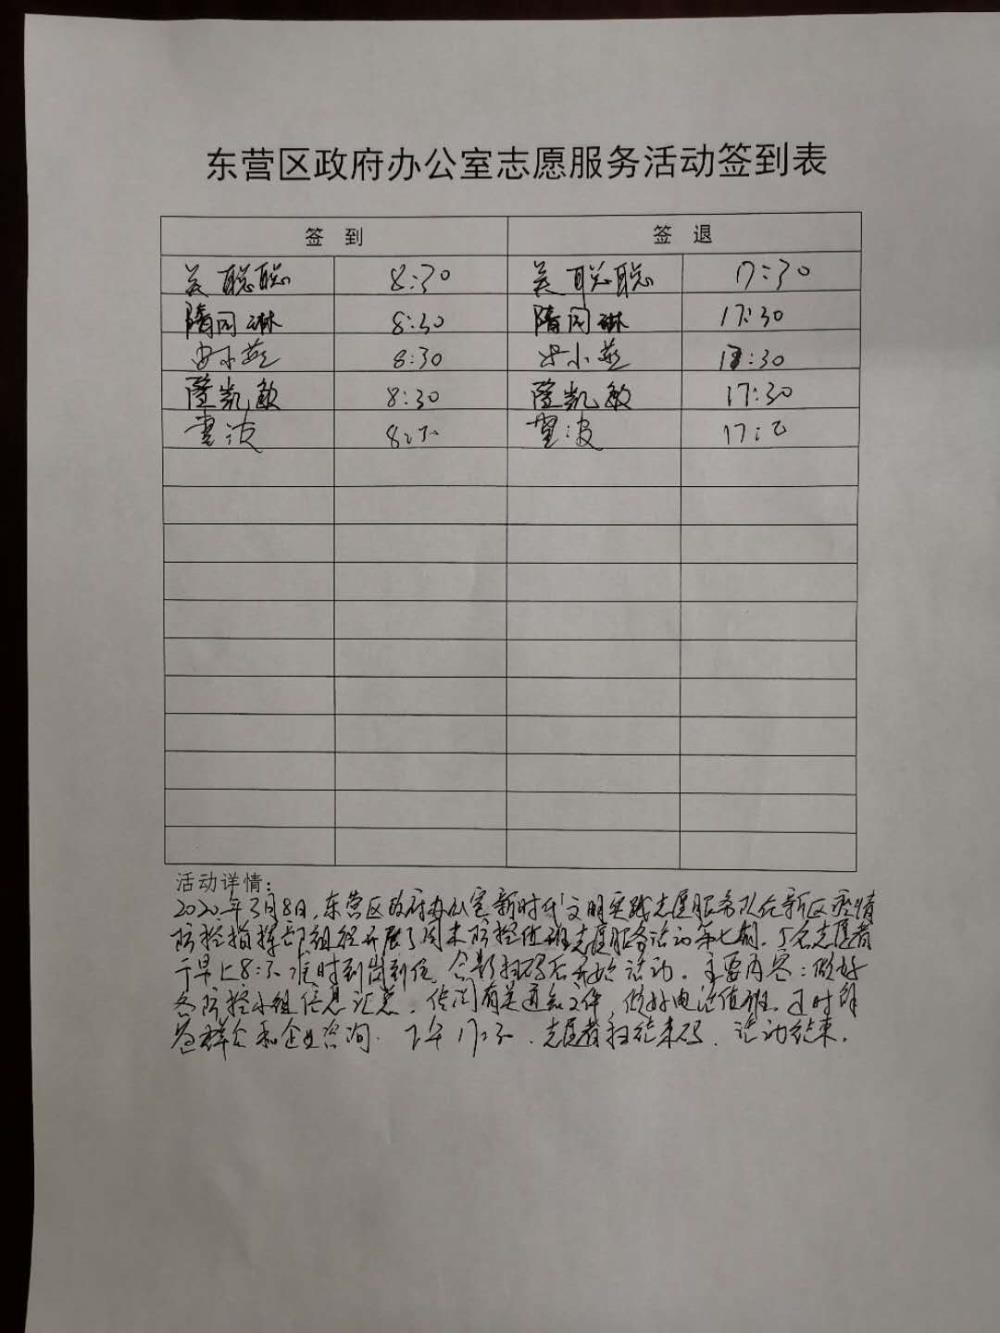 东营区政府办公室志愿服务活动签到表
签 到 签 退
聪聪 8:30 聪聪 17:30
隋同琳 8:30 隋同琳 17:30
小燕 8:30 小燕 17:30
隆凯敏 8:30 隆凯敏 17:30
波 8:30 波 17:30
活动详情:
2020年3月8日,东营区政府办公室新时代文明实践志愿服务队在新区疫情
防控指挥部组织开展了周末防控值班志愿服务活动第七期。5名志愿者
于早上8:30准时到岗到位,合影扫码后开始活动。主要内容:做好
各防控小组信息汇总,传阅有关通知文件,做好电话值班,及时解
答群众和企业咨询。下午17:30,志愿者扫结束码,活动结束。